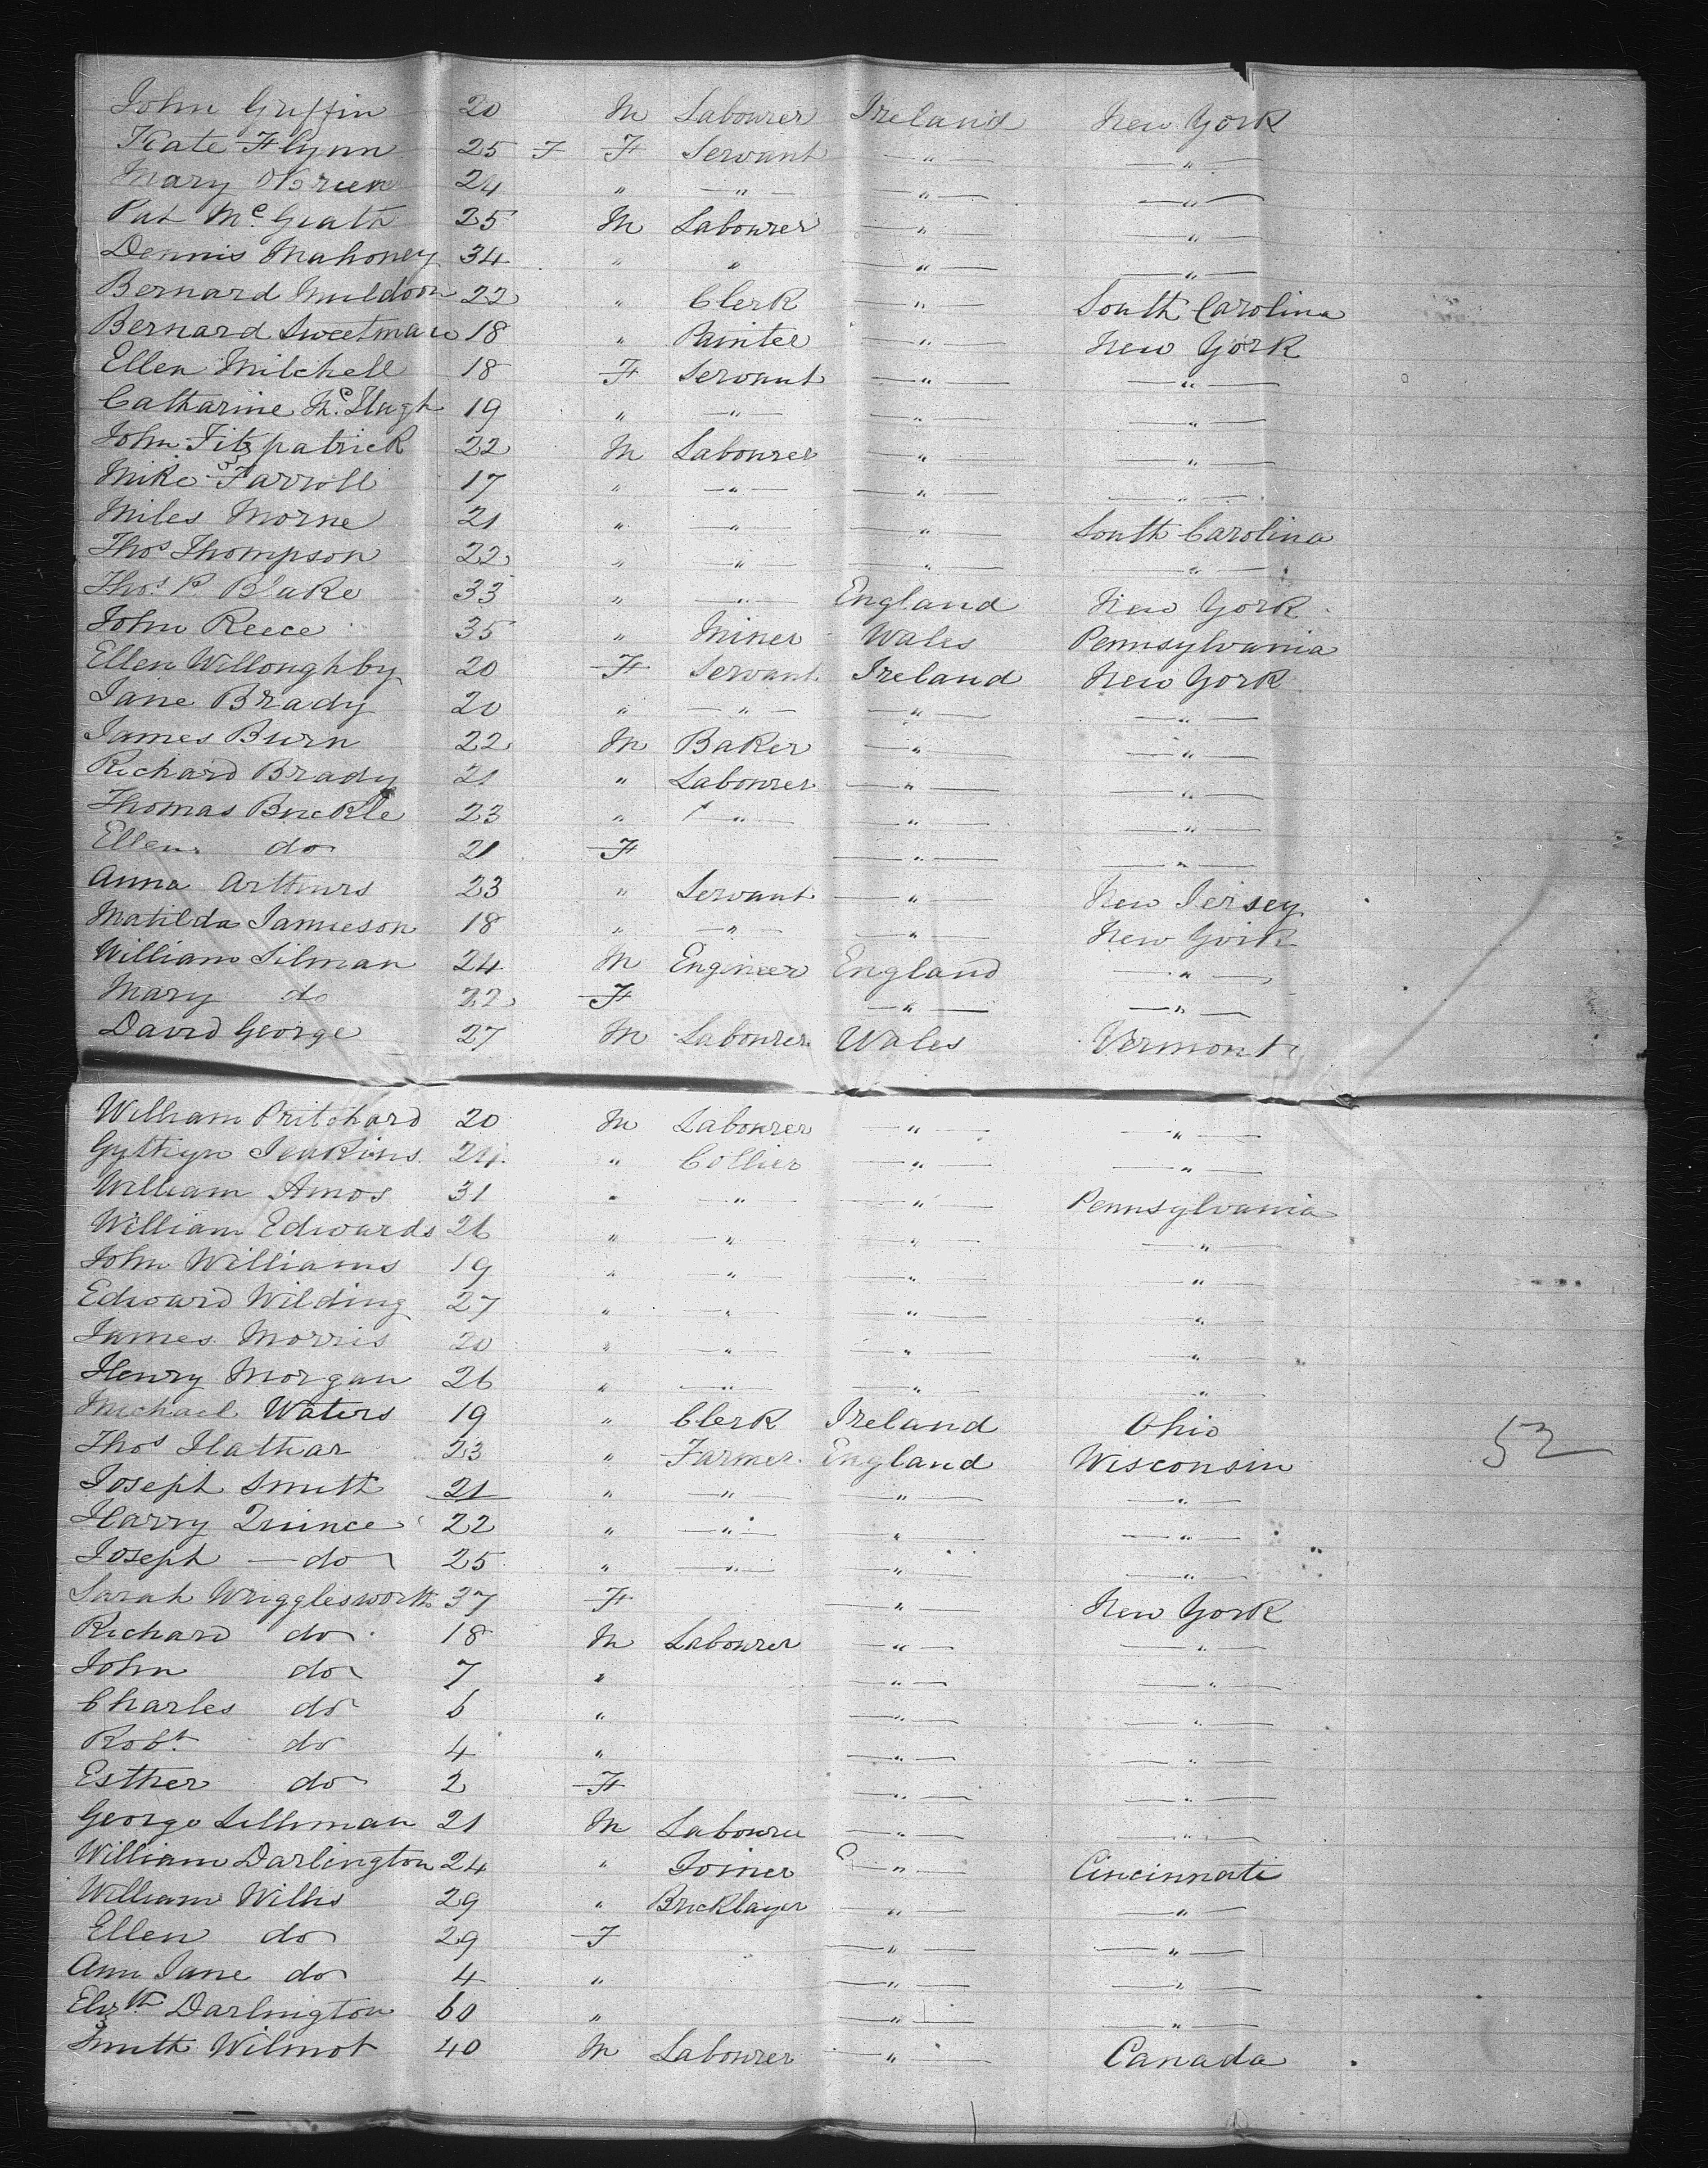 John Griffin 20 M Labourer Ireland New York
Kate Flynn 25 F F Servant — " — — " —
Mary O'Brien 24 " — " — — " — — " —
Pat McGrath 25 M Labourer — " — — " —
Dennis Mahoney 34 " " — " — — " —
Bernard Muldoon 22 " Clerk — " — South Carolina
Bernard Sweetman 18 " Painter — " — New York
Ellen Mitchell 18 F Servant — " — — " —
Catharine Mc 19 " — " — — " — — " —
John Fitzpatrick 22 M Labourer — " — — " —
Mike Farroll 17 " — " — — " — — " —
Miles Morne 21 " — " — — " — South Carolina
Thos Thompson 22 " — " — — " — — " —
Thos. P Blake 33 " — " — England New York
John Reece 35 " Miner Wales Pennsylvania
Ellen Willoughby 20 F Servant Ireland New York
Jane Brady 20 " — " — — " — — " —
James Burn 22 M Baker — " — — " —
Richard Brady 21 " Labourer — " — — " —
Thomas Buckle 23 " " — — " — — " —
Ellen do 21 F — " — — " —
Anna Arthurs 23 " Servant — " — New Jersey
Matilda Jamieson 18 " — " — — " — New York
William Silman 24 M Engineer England — " —
Mary do 22 F — " — — " —
David George 27 M Labourer Wales Vermont
William Pritchard 20 M Labourer — " — — " —
Gythyn Jenkins 24 " Collier — " — — " —
William Amos 31 " — " — — " — Pennsylvania
William Edwards 26 " — " — — " — — " —
John Williams 19 " — " — — " — — " —
Edward Wilding 27 " — " — — " — — " —
James Morris 20 " — " — — " — — " —
Henry Morgan 26 " — " — — " — — " —
Michael Waters 19 " Clerk Ireland Ohio
Thos Hathar 23 " Farmer England Wisconsin 52
Joseph Smith 21 " — " — — " — — " —
Harry Quince 22 " — " — " — " —
Joseph — do 25 " — " — " — " —
Sarah Wrigglesworth 37 F — " — New York
Richard do 18 M Labourer — " — — " —
John do 7 " — " — — " —
Charles do 6 " — " — — " —
Robt. do 4 " — " — — " —
Esther do 2 F — " — — " —
George Sillman 21 M Labourer — " — — " —
William Darlington 24 " Joiner — " — Cincinnati
William Willis 29 " Bricklayer — " — — " —
Ellen do 29 F — " — — " —
Ann Jane do 4 " — " — — " —
Elizth Darlington 60 " — " — — " —
Smith Wilmot 40 M Labourer — " — Canada